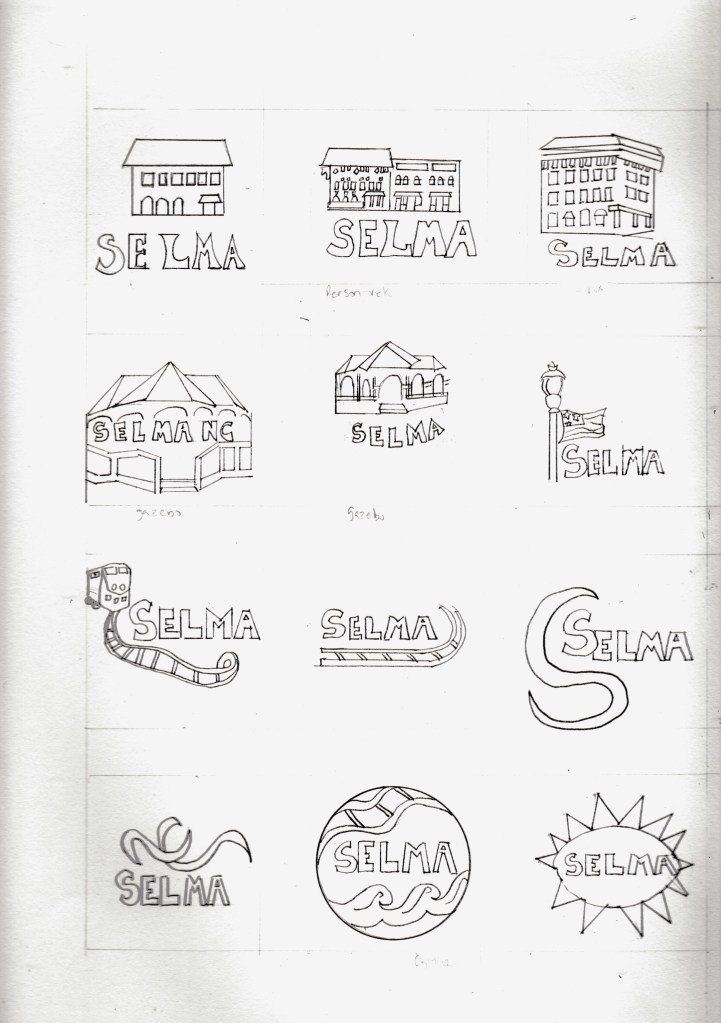 SELMA
SELMA
SELMA
SELMA NC
SELMA
SELMA
gazebo
Gazebo
SELMA
SELMA
SELMA
SELMA
SELMA
SELMA